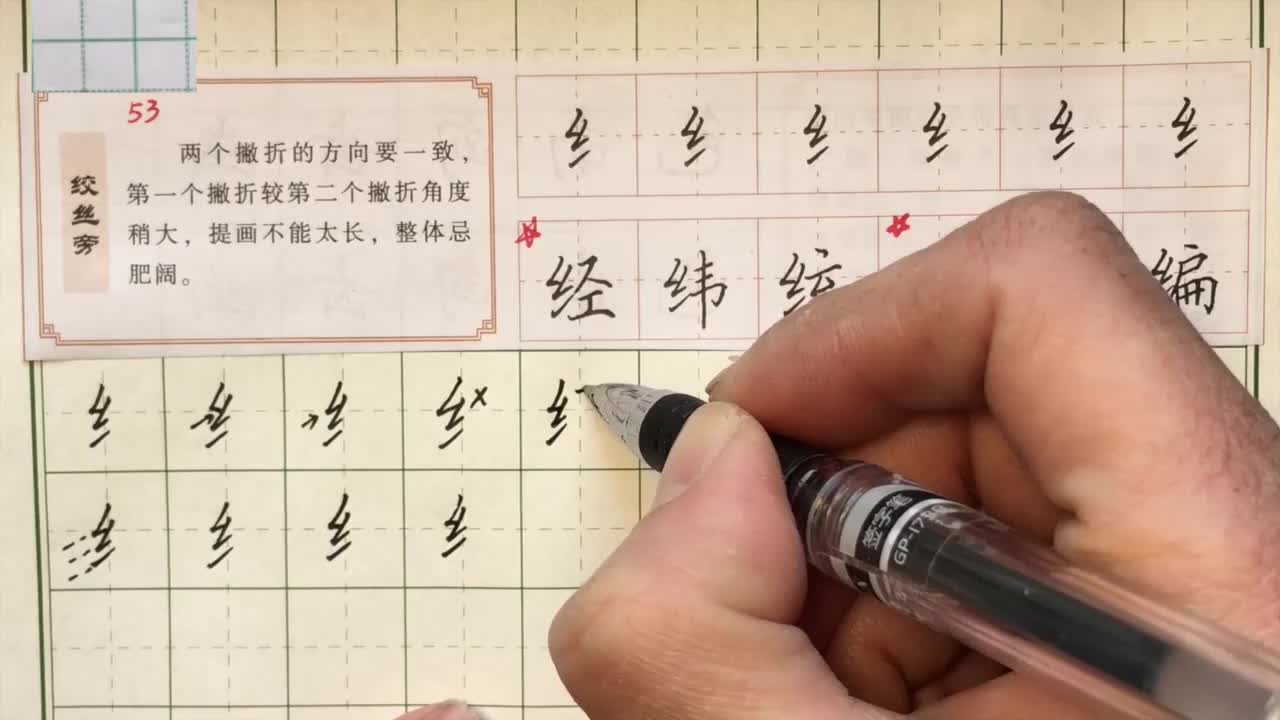 53
绞丝旁
两个撇折的方向要一致，
第一个撇折较第二个撇折角度
稍大，提画不能太长，整体忌
肥阔。
纟 纟 纟 纟 纟 纟
经 纬 统 编
纟 纟 纟 纟 x 纟
纟 纟 纟 纟
签字笔